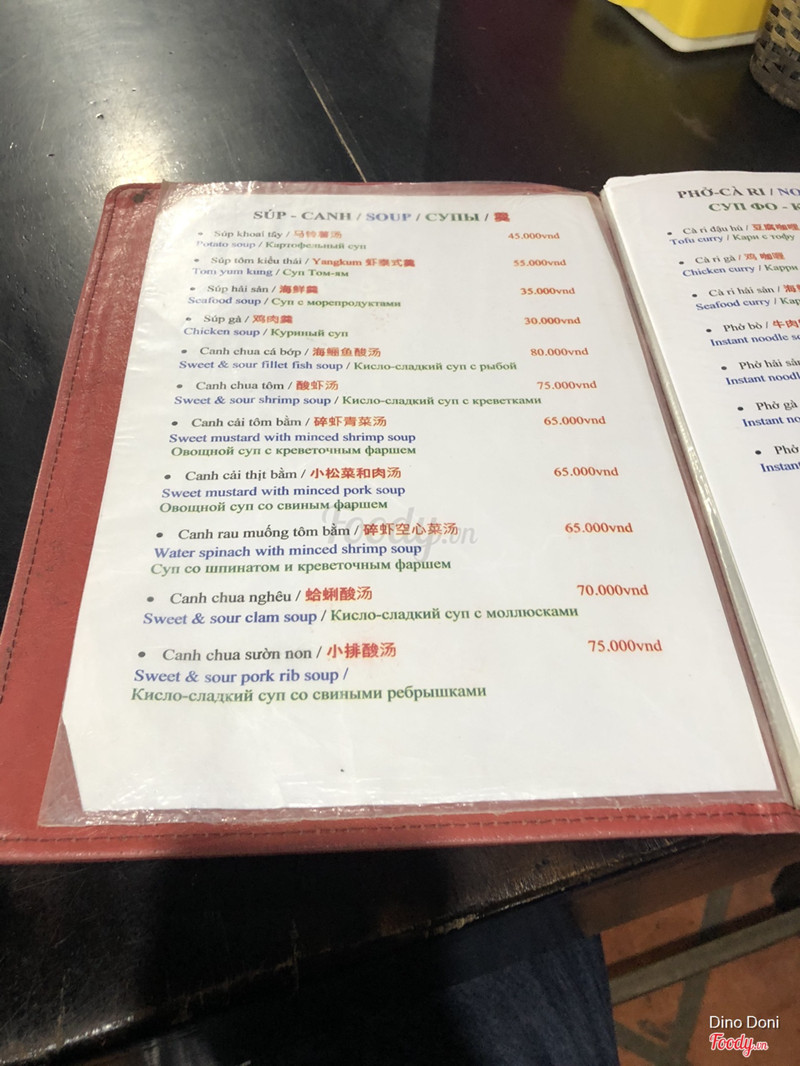 SÚP - CANH / SOUP / СУПЫ / 羹
Súp khoai tây / 马铃薯汤 45.000vnd
Potato soup / Картофельный суп
Súp tôm kiểu thái / Yangkum 虾泰式羹 55.000vnd
Tom yum kung / Суп Том-ям
Súp hải sản / 海鲜羹 35.000vnd
Seafood soup / Суп с морепродуктами
Súp gà / 鸡肉羹 30.000vnd
Chicken soup / Куриный суп
Canh chua cá bớp / 海鲡鱼酸汤 80.000vnd
Sweet & sour fillet fish soup / Кисло-сладкий суп с рыбой
Canh chua tôm / 酸虾汤 75.000vnd
Sweet & sour shrimp soup / Кисло-сладкий суп с креветками
Canh cải tôm bằm / 碎虾青菜汤 65.000vnd
Sweet mustard with minced shrimp soup
Овощной суп с креветочным фаршем
Canh cải thịt bằm / 小松菜和肉汤 65.000vnd
Sweet mustard with minced pork soup
Овощной суп со свиным фаршем
Canh rau muống tôm bằm / 碎虾空心菜汤 65.000vnd
Water spinach with minced shrimp soup
Суп со шпинатом и креветочным фаршем
Canh chua nghêu / 蛤蜊酸汤 70.000vnd
Sweet & sour clam soup / Кисло-сладкий суп с моллюсками
Canh chua sườn non / 小排酸汤 75.000vnd
Sweet & sour pork rib soup /
Кисло-сладкий суп со свиными ребрышками
PHỞ-CÀ RI / NO
СУП ФО - К
Cà ri đậu hủ / 豆腐咖喱
Tofu curry / Кари с тофу
Cà ri gà / 鸡 咖喱
Chicken curry / Карри
Cà ri hải sản / 海
Seafood curry / Кар
Phở bò / 牛肉
Instant noodle so
Phở hải sản
Instant noodl
Phở gà
Instant no
Phở
Instant
Foody.vn
Dino Doni
Foody.vn